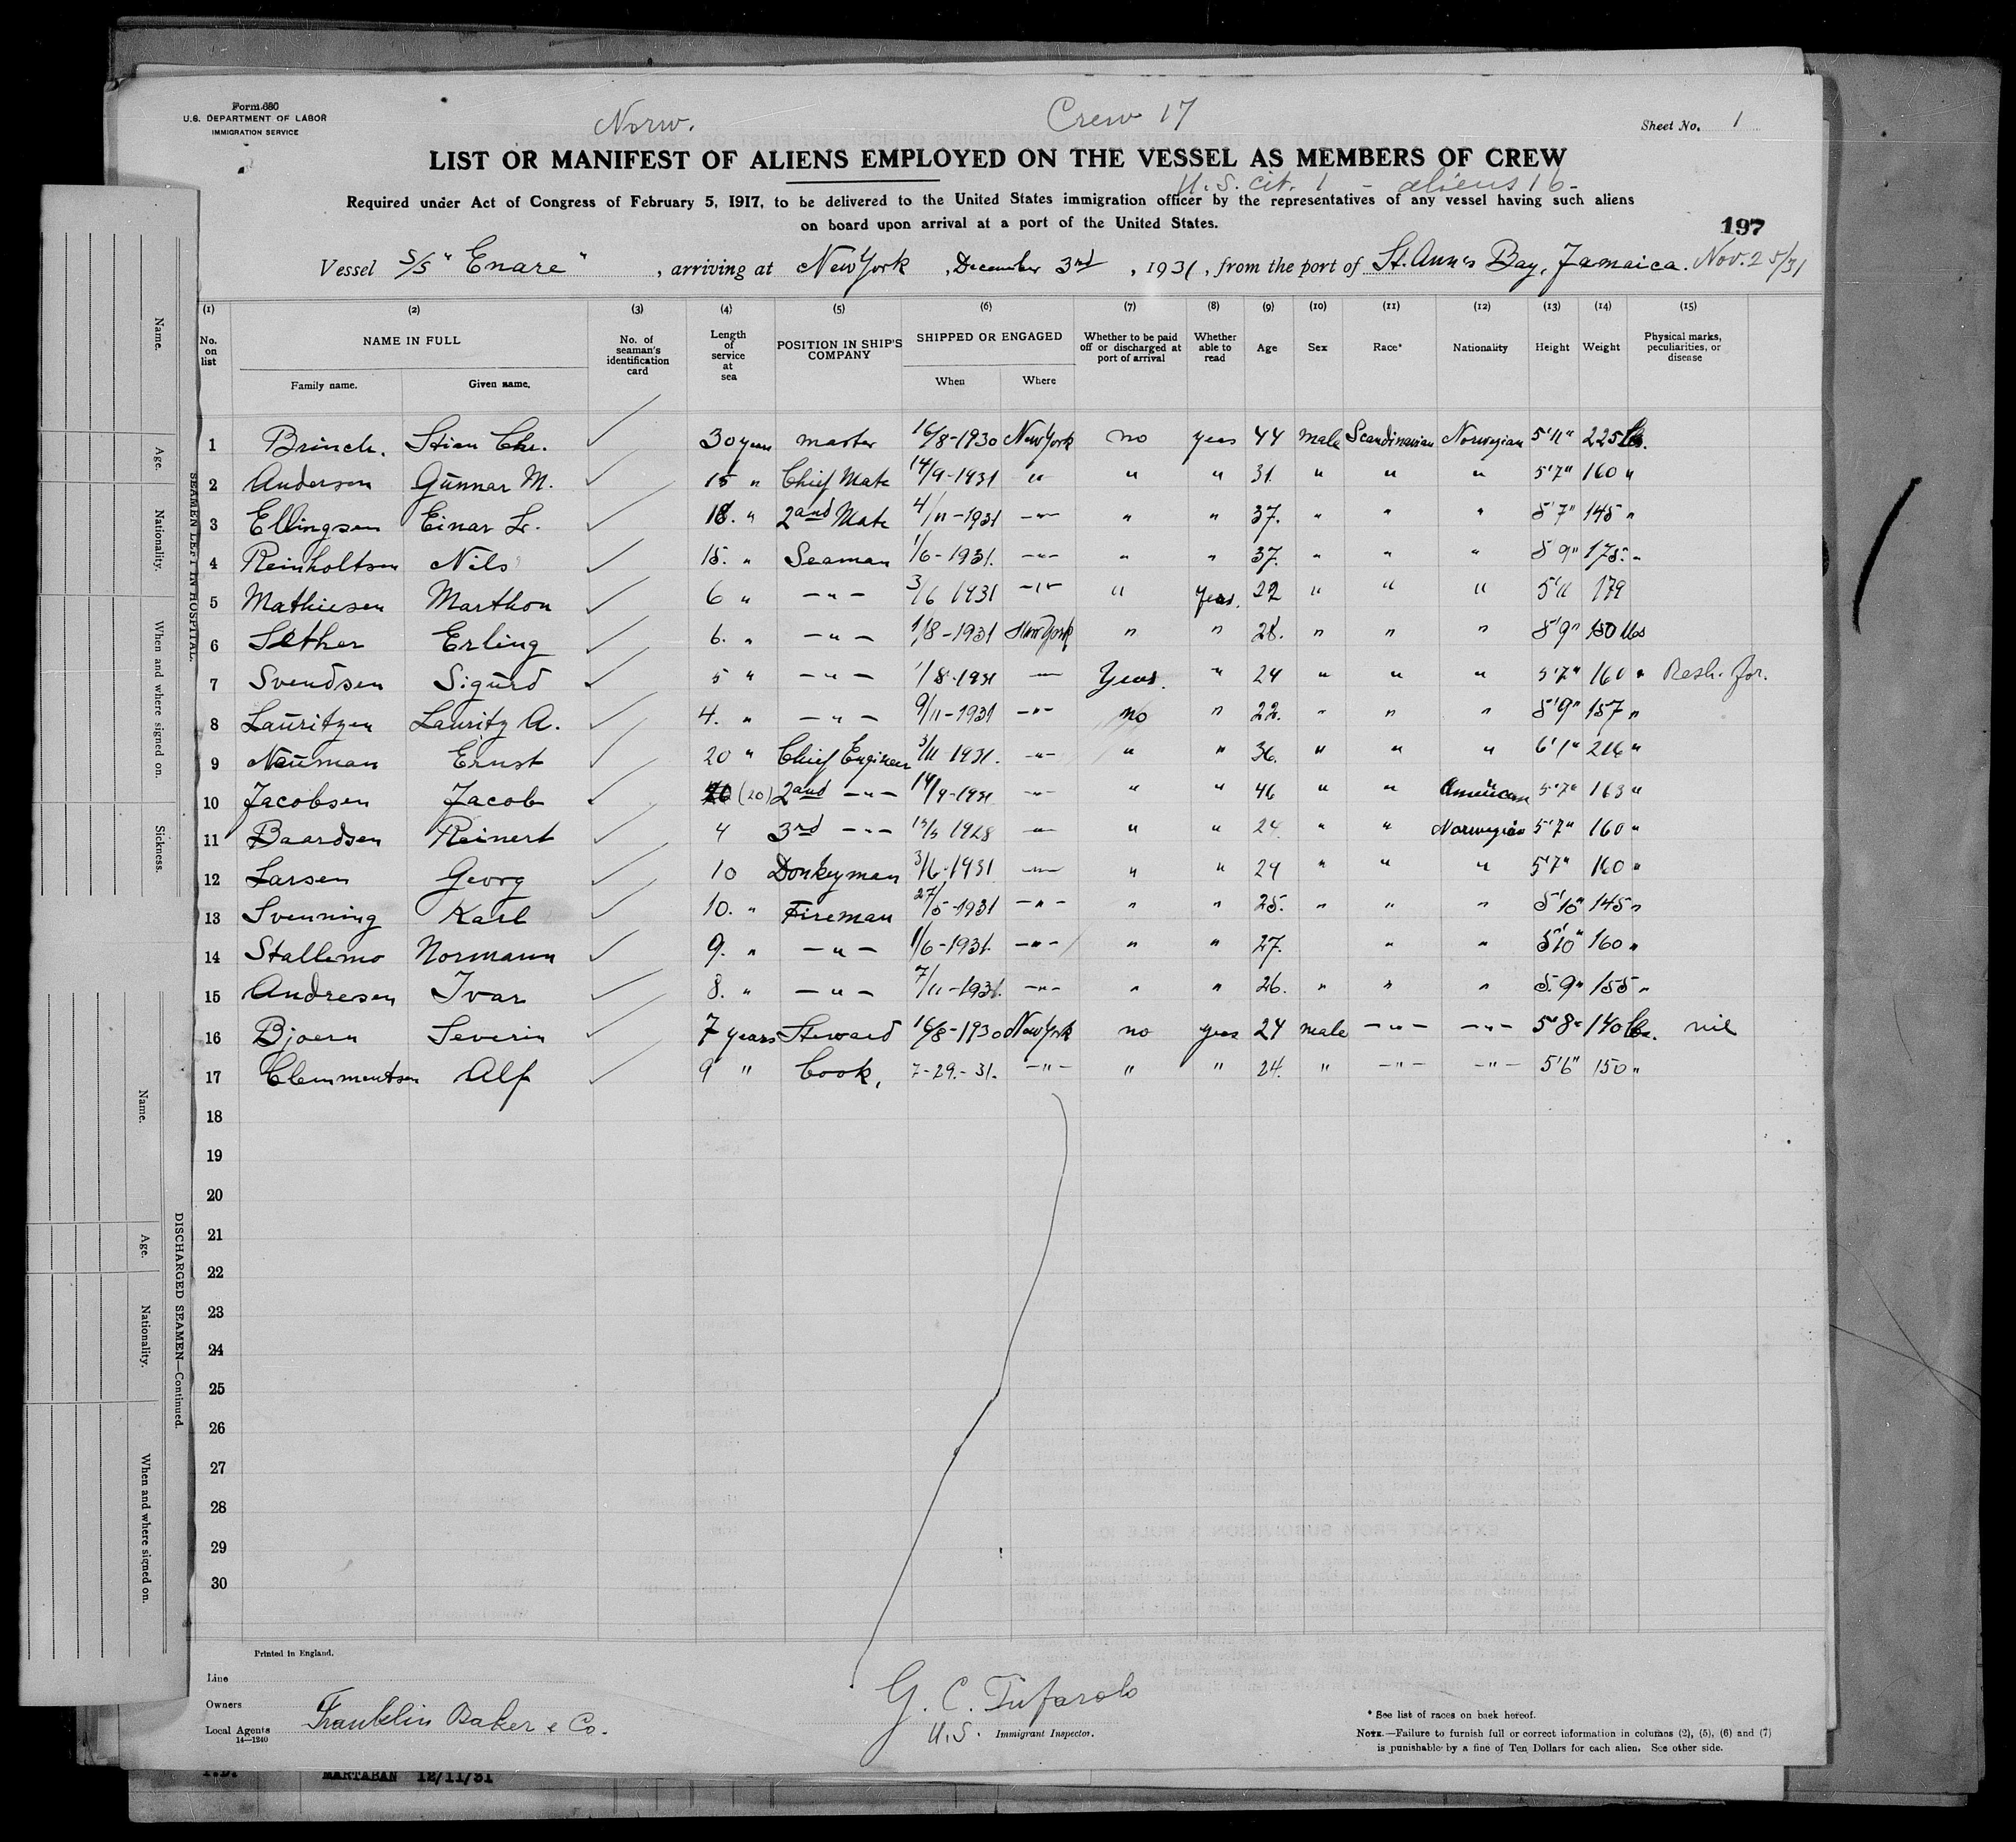 Form 680
U.S. DEPARTMENT OF LABOR
IMMIGRATION SERVICE
Norw.
Crew 17
Sheet No. 1
LIST OR MANIFEST OF ALIENS EMPLOYED ON THE VESSEL AS MEMBERS OF CREW
U.S. cit. 1 - aliens 16 -
Required under Act of Congress of February 5, 1917, to be delivered to the United States immigration officer by the representatives of any vessel having such aliens
on board upon arrival at a port of the United States.
197
Vessel S/S "Enare", arriving at New York, December 3rd, 1931, from the port of St. Ann's Bay, Jamaica. Nov. 25/31
(1) (2) (3) (4) (5) (6) (7) (8) (9) (10) (11) (12) (13) (14) (15)
No. on list NAME IN FULL No. of seaman's identification card Length of service at sea POSITION IN SHIP'S COMPANY SHIPPED OR ENGAGED Whether to be paid off or discharged at port of arrival Whether able to read Age Sex Race* Nationality Height Weight Physical marks, peculiarities, or disease
Family name. Given name. When Where
1 Brinch. Stian Chr. 30 years master 16/8-1930 New York no yes 44 male Scandinavian Norwegian 5'11" 225 lbs.
2 Anderson Gunnar M. 15 " Chief Mate 14/9-1931 " " " 31 " " " 5'7" 160 "
3 Ellingsen Einar L. 18. " 2and Mate 4/11-1931 -"- " " 37. " " " 5'7" 145 "
4 Reinholtsen Nils 15. " Seaman 1/6-1931. -"- " " 37. " " " 5'9" 175. "
5 Mathiesen Marthon 6 " -"- 3/6 1931 -"- " yes. 22 " " " 5'11 179
6 Sether Erling 6. " -"- 1/8-1931 New York " " 28. " " " 5'9" 150 lbs
7 Svendsen Sigurd 5 " -"- 1/8-1931 -"- Yes. " 24 " " " 5'7" 160 " Resh. for.
8 Lauritzen Lauritz A. 4. " -"- 9/11-1931 -"- no " 22. " " " 5'9" 157 "
9 Nauman Ernst 20 " Chief Engineer 3/11-1931. -"- " " 36. " " " 6'1" 216 "
10 Jacobsen Jacob (20) 2and -"- 14/9-1931 -"- " " 46 " " American 5'7" 163 "
11 Baardsen Reinert 4 3rd -"- 1928 -"- " " 24 " " Norwegian 5'7" 160 "
12 Larsen Georg 10 Donkeyman 3/6-1931 -"- " " 29 " " " 5'7" 160 "
13 Svenning Karl 10. " Fireman 27/5-1931 -"- " " 25. " " " 5'10" 145 "
14 Stallemo Normann 9. " -"- 1/6-1931. -"- " " 27. " " 5'10" 160 "
15 Andresen Ivar 8. " -"- 7/11-1931. -"- " " 26. " " " 5.9" 155 "
16 Bjoern Severin 7 years Steward 16/8-1930 New York no yes 24 male -"- -"- 5'8" 140 lbs. nil
17 Clemmentsen Alf 9 " Cook, 7-29.-31. -"- " " 24. " -"- -"- 5'6" 150 "
18
19
20
21
22
23
24
25
26
27
28
29
30
Printed in England.
Line
Owners
Local Agents Franklin Baker & Co.
14—1240
G. C. Tufarolo
U.S. Immigrant Inspector.
* See list of races on back hereof.
NOTE.—Failure to furnish full or correct information in columns (2), (5), (6) and (7)
is punishable by a fine of Ten Dollars for each alien. See other side.
MARTABAN 12/11/31
SEAMEN LEFT IN HOSPITAL.
Name. Age. Nationality. When and where signed on. Sickness.
DISCHARGED SEAMEN—Continued.
Name. Age. Nationality. When and where signed on.